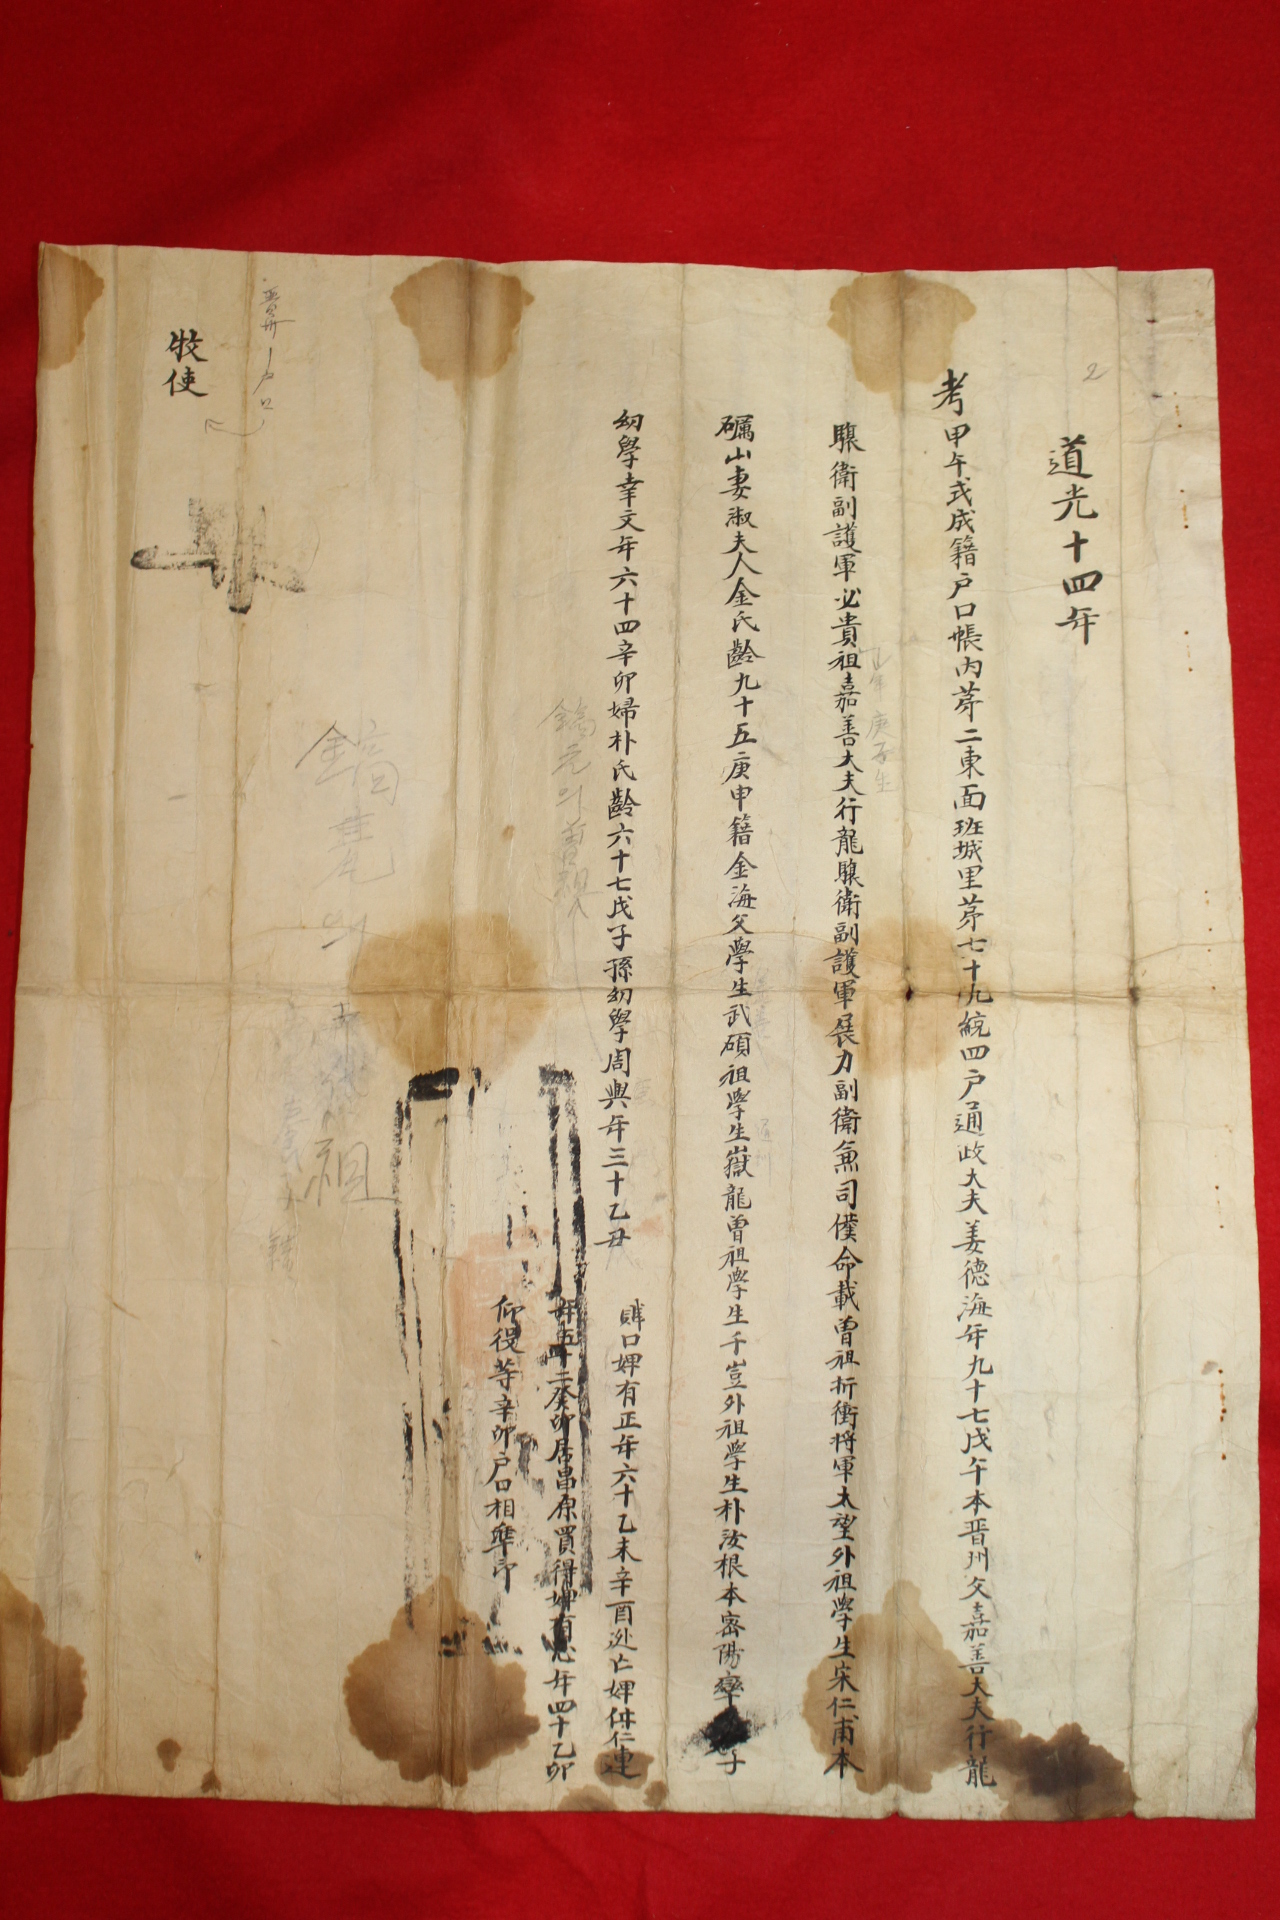 道光十四年
考甲午式成籍户口帳内苐二東面班城里苐七十九統四户通政大夫姜德海年九十七戊午本晋州父嘉善大夫行龍
驤衛副護軍必貴祖嘉善大夫行龍驤衛副護軍展力副衛兼司僕命載曾祖折衝将軍太望外祖學生宋仁甫本
礪山妻淑夫人金氏齡九十五庚申籍金海父學生武碩祖學生嶽龍曾祖學生千豈外祖學生朴汝根本密陽率子
幼學幸文年六十四辛卯婦朴氏齡六十七戊子孫幼學周興年三十乙丑
賎口婢有正年六十乙未辛酉迯亡婢仁連
年五十二癸卯居昌原買得婢年四十乙卯
仰役等辛卯户口相凖印
牧使
2
庚子生
祖